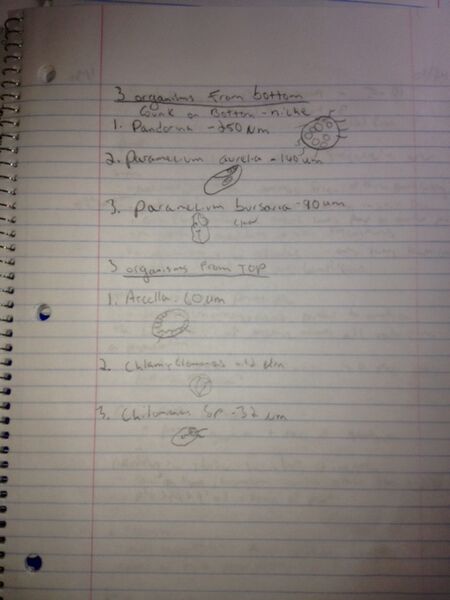 3 organisms From bottom
Gunk on Bottom - niche
1. Pandorina - 250 um
2. Paramecium aurelia - 140 um
3. Paramecium bursaria - 90 um
3 organisms From TOP
1. Arcella - 60 um
2. Chlamydomonas um
3. Chilomonas Sp - 32 um